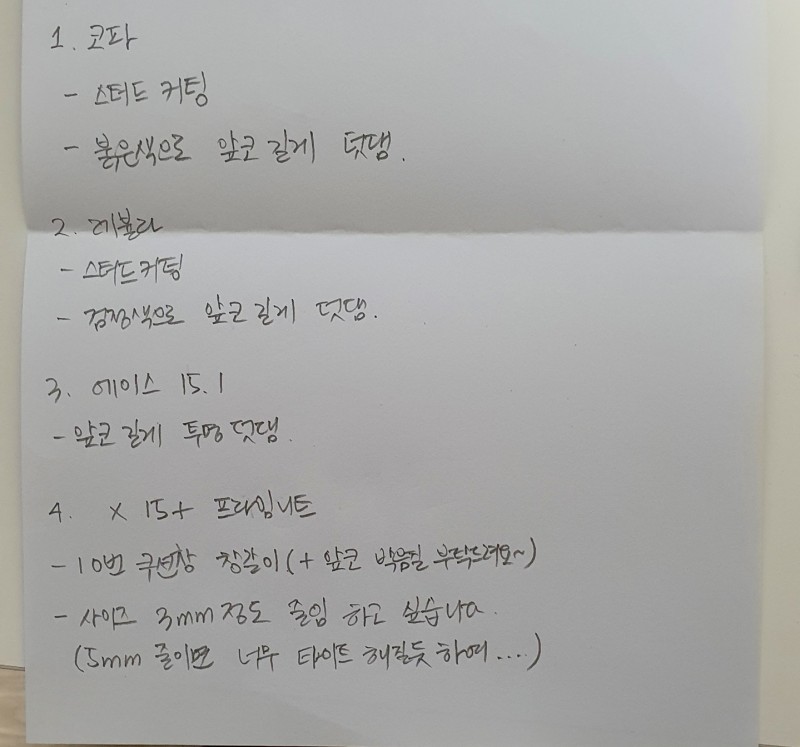 1. 코파
- 스터드 커팅
- 붉은색으로 앞코 길게 덧댐.
2. 레볼라
- 스터드커팅
- 검정색으로 앞코 길게 덧댐.
3. 에이스 15.1
- 앞코 길게 투명 덧댐.
4. X 15+ 프라임니트
- 10번 쿠션창 창갈이 (+ 앞코 박음질 부탁드려요~)
- 사이즈 3mm 정도 줄임 하고 싶습니다.
(5mm 줄이면 너무 타이트 해질듯 하여....)